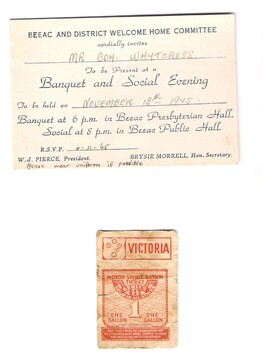 BEEAC AND DISTRICT WELCOME HOME COMMITTEE
cordially invites
MR CON. WHYTCROSS.
To be Present at a
Banquet and Social Evening
To be held on NOVEMBER 13th 1945.
Banquet at 6 p.m. in Beeac Presbyterian Hall.
Social at 8 p.m. in Beeac Public Hall.
R.S.V.P. 6-11-45
W. J. PIERCE, President. BRYSIE MORRELL, Hon. Secretary.
Please wear uniform if possible
VICTORIA
MOTOR SPIRIT RATION
TICKET
ONE GALLON
1
ONE GALLON